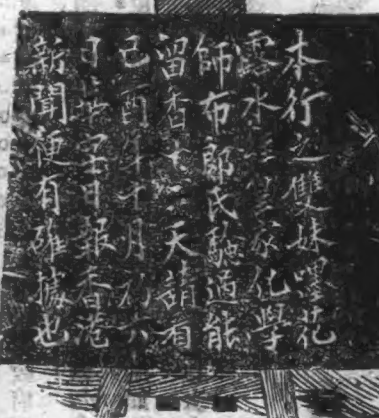 本行之雙妹嚜花
露水皇家化學
師布郎氏驗過能
留香十二天請看
己酉年十月初六
日士蔑日報香港
新聞便有確據也